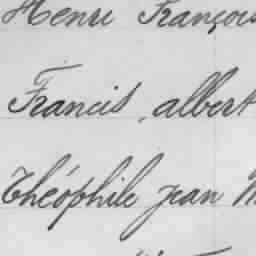 Henri François
Francis, albert
Théophile jean